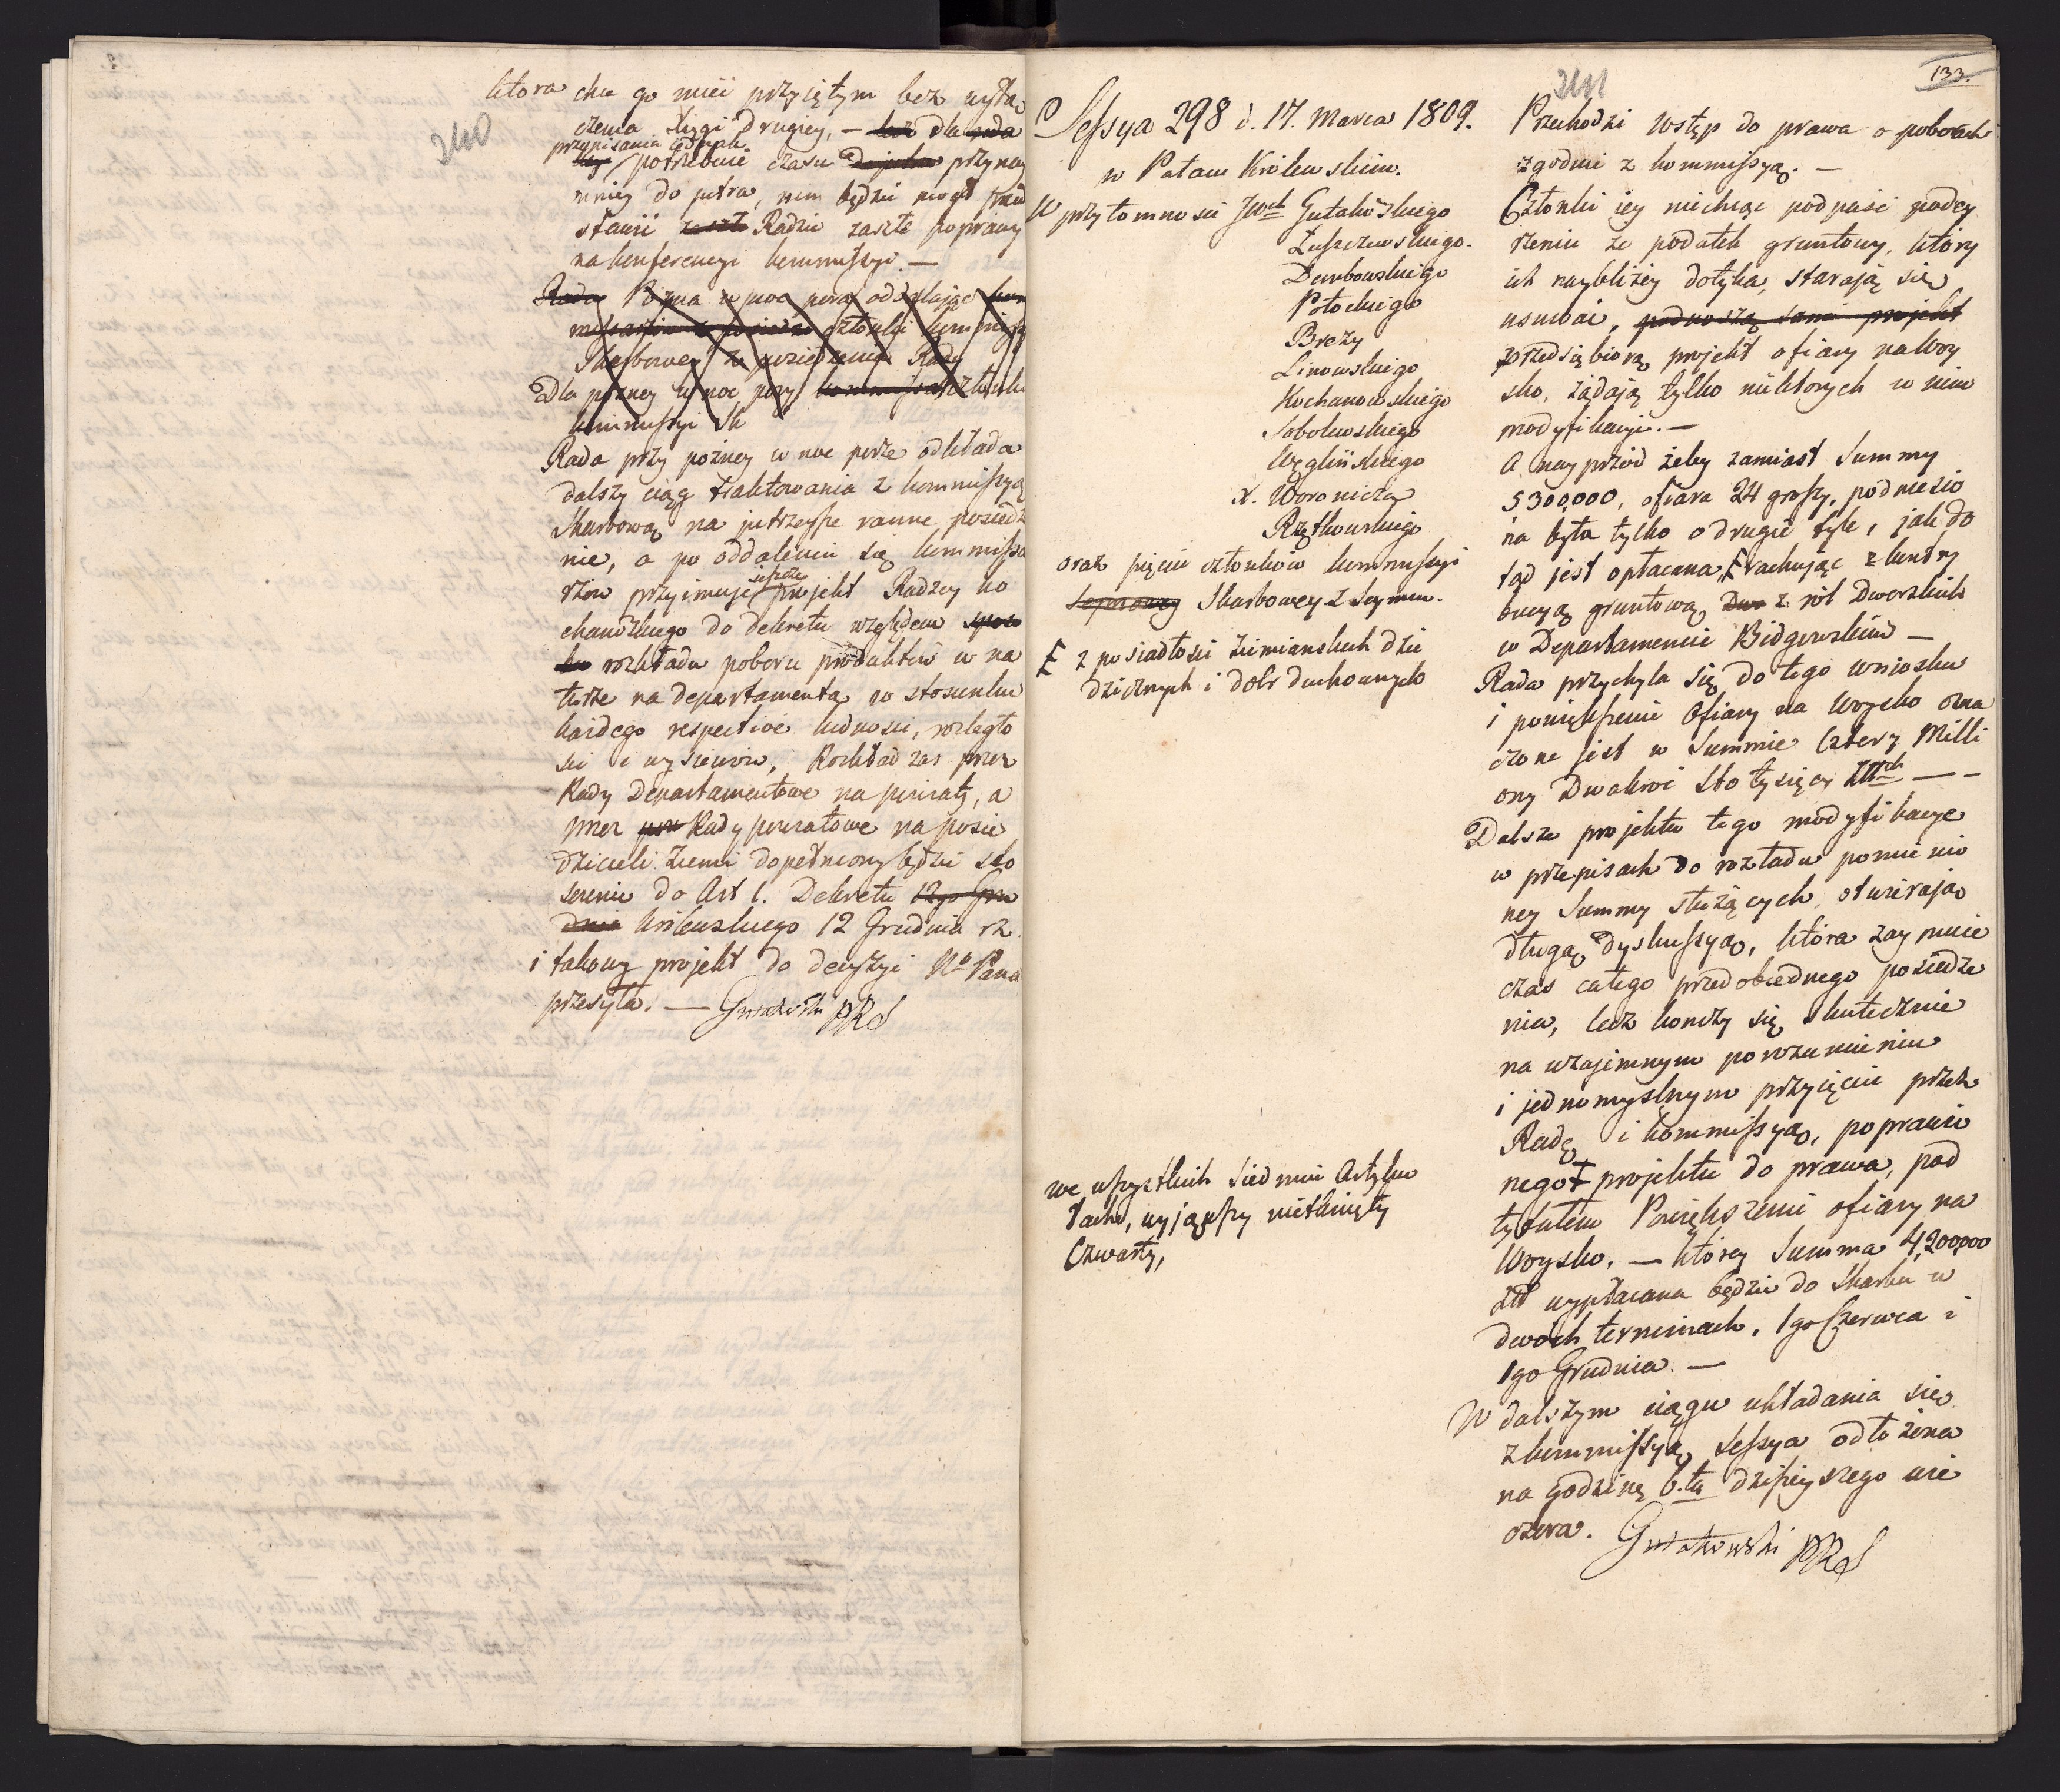 240
która chce go mieć przyiętym bez wyłą
czenia ligi drugiey, — lecz dla
przepisania iednak
potrzebuie czasu do jutra przynay
mniey do jutra, nim będzie mogł przed
stawić Radzie zaszłe poprawy
na konferencyi kommissyi. —
Rada Pozna w noc pora odsyłając kom
członki kommissyi
Skarbowey z posiedzenia Rady
Dla pozney w noc pory członki
kommissyi Sk
Rada przy pozney w noc porze odkłada
dalszy ciąg traktowania z kommissyą
Skarbową na jutrzeysze ranne posiedze
nie, a po oddaleniu się kommissa
rzow przyimuje jeszcze projekt Radzcy Ko
chanowskiego do dekretu względem sposo
bu rozkładu poboru produktów w na
turze na departamenta w stosunku
każdego respective ludności, rozległo
ści i wysiewów, Rozkład zaś przez
Rady Departamentowe na powiaty, a
przez Rady powiatowe na posie
dzicieli Ziemi dopełniony będzie sto
sownie do Art 1. Dekretu 12go Gru
dnia Królewskiego 12 Grudnia rz.
i takowy projekt do decyzyi Nº Pana
przesyła. — Gutakowski PRS
133.
241
Sessya 298 d. 17. Marca 1809.
w Pałacu Królewskim.
W przytomności JWch Gutakowskiego
Łuszczewskiego.
Dembowskiego
Potockiego
Brezy
Linowskiego
Kochanowskiego
Sobolewskiego
Węglińskiego
X. Woronicza
Rętkowskiego
oraz pięciu członków kommissyi
Seymowey Skarbowey z Seymu.
z posiadłości ziemianskich dzie
dzicznych i dobr duchownych
we wszystkich siedmiu Artyku
łach, wyjąwszy nietknięty
Czwarty,
Przechodzi wstęp do prawa o poborach
zgodnie z kommissyą. —
Członki iey niechcąc podpaść podey
rzeniu że podatek gruntowy, który
ich naybliżey dotyka, starają się
usuwać, podnoszą sami projekt
przedsiębiorą projekt ofiary na woy
sko, żądają tylko niektorych w nim
modyfikacyi. —
A nayprzód żeby zamiast Summy
5300,000, ofiara 24 groszy, podniesio
na była tylko o drugie tyle, jak do
tąd jest opłacana, rachując z kontry
bucyą gruntową Dwo z ról Dworskich
w Departamencie Bidgowskim —
Rada przychyla się do tego wniosku
i powiększenie Ofiary na Woysko ozna
czone jest w Summie Cztery Milli
ony Dwakroć sto tysięcy Złłch — —
Dalsze projektu tego modyfikacye
w przepisach do rozkładu pomienio
ney Summy służących, otwierają
długą dyskussyą, która zaymuie
czas całego przedobiednego posiedze
nia, lecz kończy się skutecznie
na wzajemnym porozumieniu
i jednomyślnym przyięciu przez
Radę i kommissyą, poprawio
nego projektu do prawa, pod
tytułem Powiększenie ofiary na
Woysko. — którey Summa 4,200,000
złł wypłacana będzie do Skarbu w
dwóch terminach, 1go Czerwca i
1go Grudnia. —
W dalszym ciągu układania się
z kommissyą, Sessya odłożona
na godzinę 6.tą dzisieyszego wie
czora. Gutakowski PRS